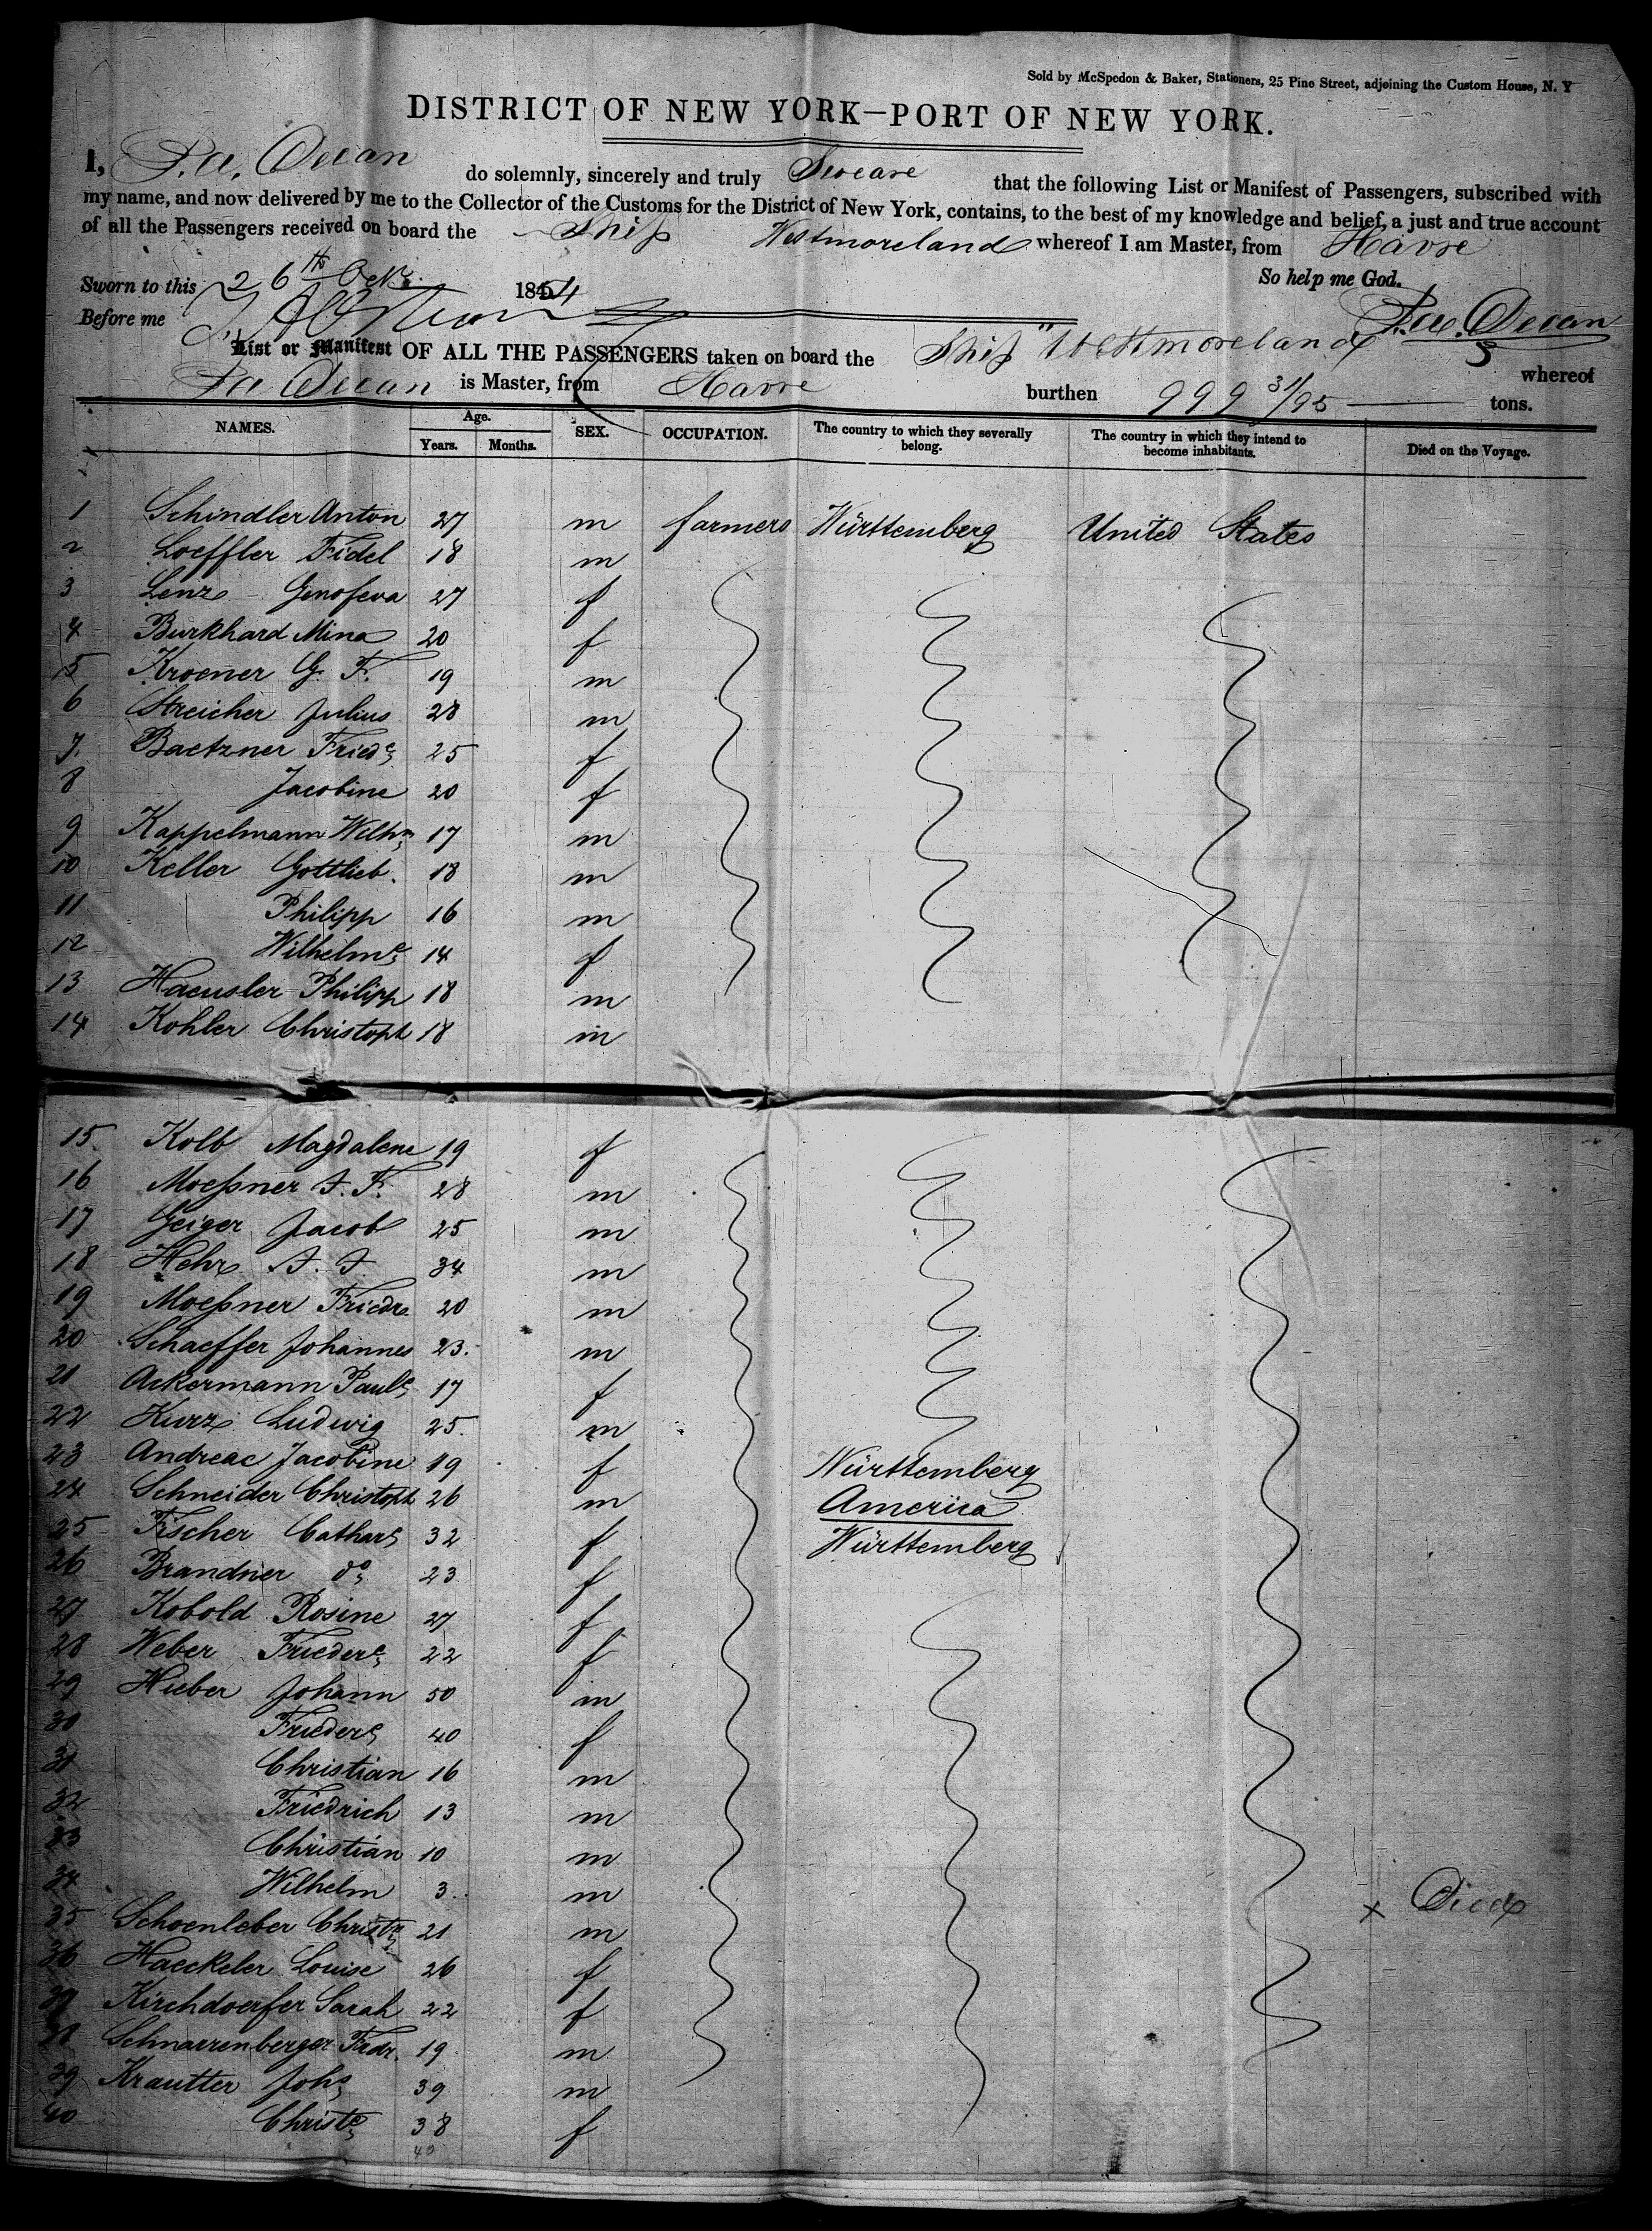 Sold by McSpedon & Baker, Stationers, 25 Pine Street, adjoining the Custom House, N. Y
DISTRICT OF NEW YORK—PORT OF NEW YORK.
I, P.A. Decan do solemnly, sincerely and truly Sweare that the following List or Manifest of Passengers, subscribed with
my name, and now delivered by me to the Collector of the Customs for the District of New York, contains, to the best of my knowledge and belief, a just and true account
of all the Passengers received on board the Ship Westmoreland whereof I am Master, from Havre
So help me God.
Sworn to this 26th Octr. 1854
Before me
P.A. Decan
List or Manifest OF ALL THE PASSENGERS taken on board the Ship Westmoreland whereof
P A Decan is Master, from Havre burthen 999 31/95 tons.
NAMES. Age. Years. Months. SEX. OCCUPATION. The country to which they severally belong. The country in which they intend to become inhabitants. Died on the Voyage.
1 Schindler Anton 27 m farmers Württemberg United States
2 Loeffler Fidel 18 m
3 Lenz Genofeva 27 f
4 Burkhard Mina 20 f
5 Kroener G. F. 19 m
6 Streicher Julius 28 m
7. Baetzner Friede 25 f
8 Jacobine 20 f
9 Kappelmann Wilhm 17 m
10 Keller Gottlieb. 18 m
11 Philipp 16 m
12 Wilhelme 14 f
13 Haeusler Philipp 18 m
14 Kohler Christoph 18 m
15. Kolb Magdalene 19 f
16 Moeßner J. F. 28 m
17 Geiger Jacob 25 m
18 Hehr J. J. 34 m
19 Moeßner Friedr. 20 m
20 Schaeffer Johannes 23. m
21 Ackermann Paule 17 f
22 Kurz Ludwig 25. m
23 Andreae Jacobine 19 f Württemberg
24 Schneider Christoph 26 m America
25 Fischer Cathare 32 f Württemberg
26 Brandner do 23 f
27 Kobold Rosine 27 f
28 Weber Friedere 22 f
29 Hieber Johann 50 m
30 Friedere 40 f
31 Christian 16 m
32 Friedrich 13 m
33 Christian 10 m
34 Wilhelm 3. m x Died
35 Schoenleber Christn 21 m
36 Haeckeler Louise 26 f
37 Kirchdoerfer Sarah 22 f
38 Schnarrenberger Frdr. 19 m
39 Krautter Johs 39 m
40 Christe 38 f
40